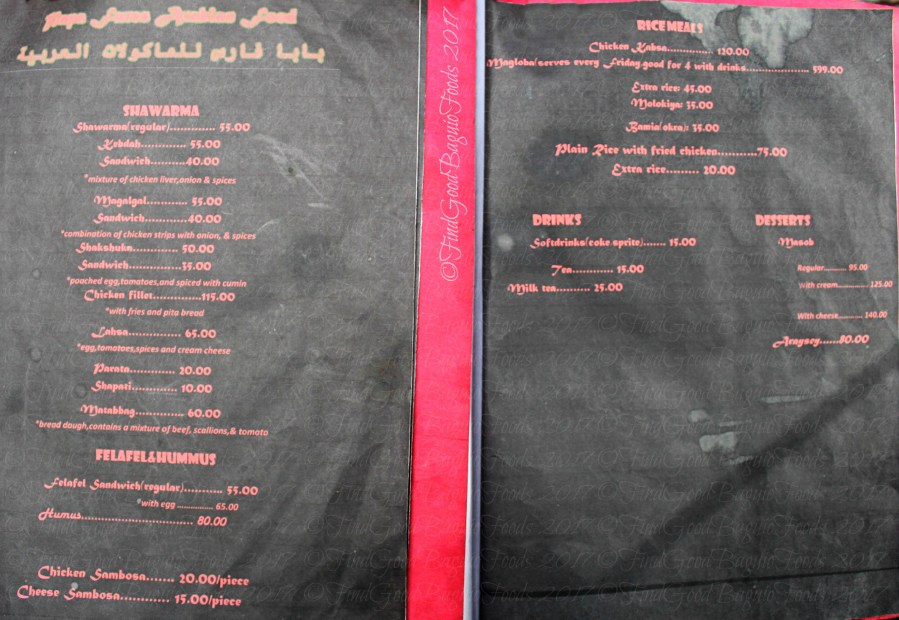 Papa Fares Arabian Food
بابا فارس للماكولات العربية
SHAWARMA
Shawarma(regular)............. 55.00
Kebdah............. 55.00
Sandwich..........40.00
*mixture of chicken liver,onion & spices
Magalgal............ 55.00
Sandwich............40.00
*combination of chicken strips with onion, & spices
Shakshuka............. 50.00
Sandwich...........35.00
*poached egg,tomatoes,and spiced with cumin
Chicken fillet..............115.00
*with fries and pita bread
Lahsa............... 65.00
*egg,tomatoes,spices and cream cheese
Parata............. 20.00
Shapati............. 10.00
Matabbag.............. 60.00
*bread dough,contains a mixture of beef, scallions,& tomato
FELAFEL&HUMMUS
Felafel Sandwich(regular)........... 55.00
*with egg ................ 65.00
Humus................................ 80.00
Chicken Sambosa....... 20.00/piece
Cheese Sambosa........... 15.00/piece
©FindGoodBaguioFoods 2017
RICE MEALS
Chicken Kabsa............. 120.00
Magloba/serves every Friday,good for 4 with drinks.................. 599.00
Extra rice: 45.00
Molokiya: 35.00
Bamia(okra): 35.00
Plain Rice with fried chicken...........75.00
Extra rice......... 20.00
DRINKS
Softdrinks(coke sprite)....... 15.00
Tea............ 15.00
Milk tea.......... 25.00
DESSERTS
Masob
Regular.......... 95.00
With cream.............. 125.00
With cheese........... 140.00
Araysey......80.00